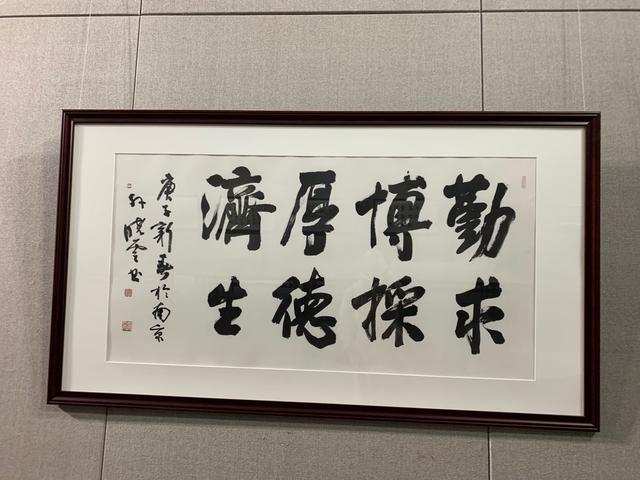 勤求
博採
厚德
濟生
庚子新春於南京
孙晓雲书